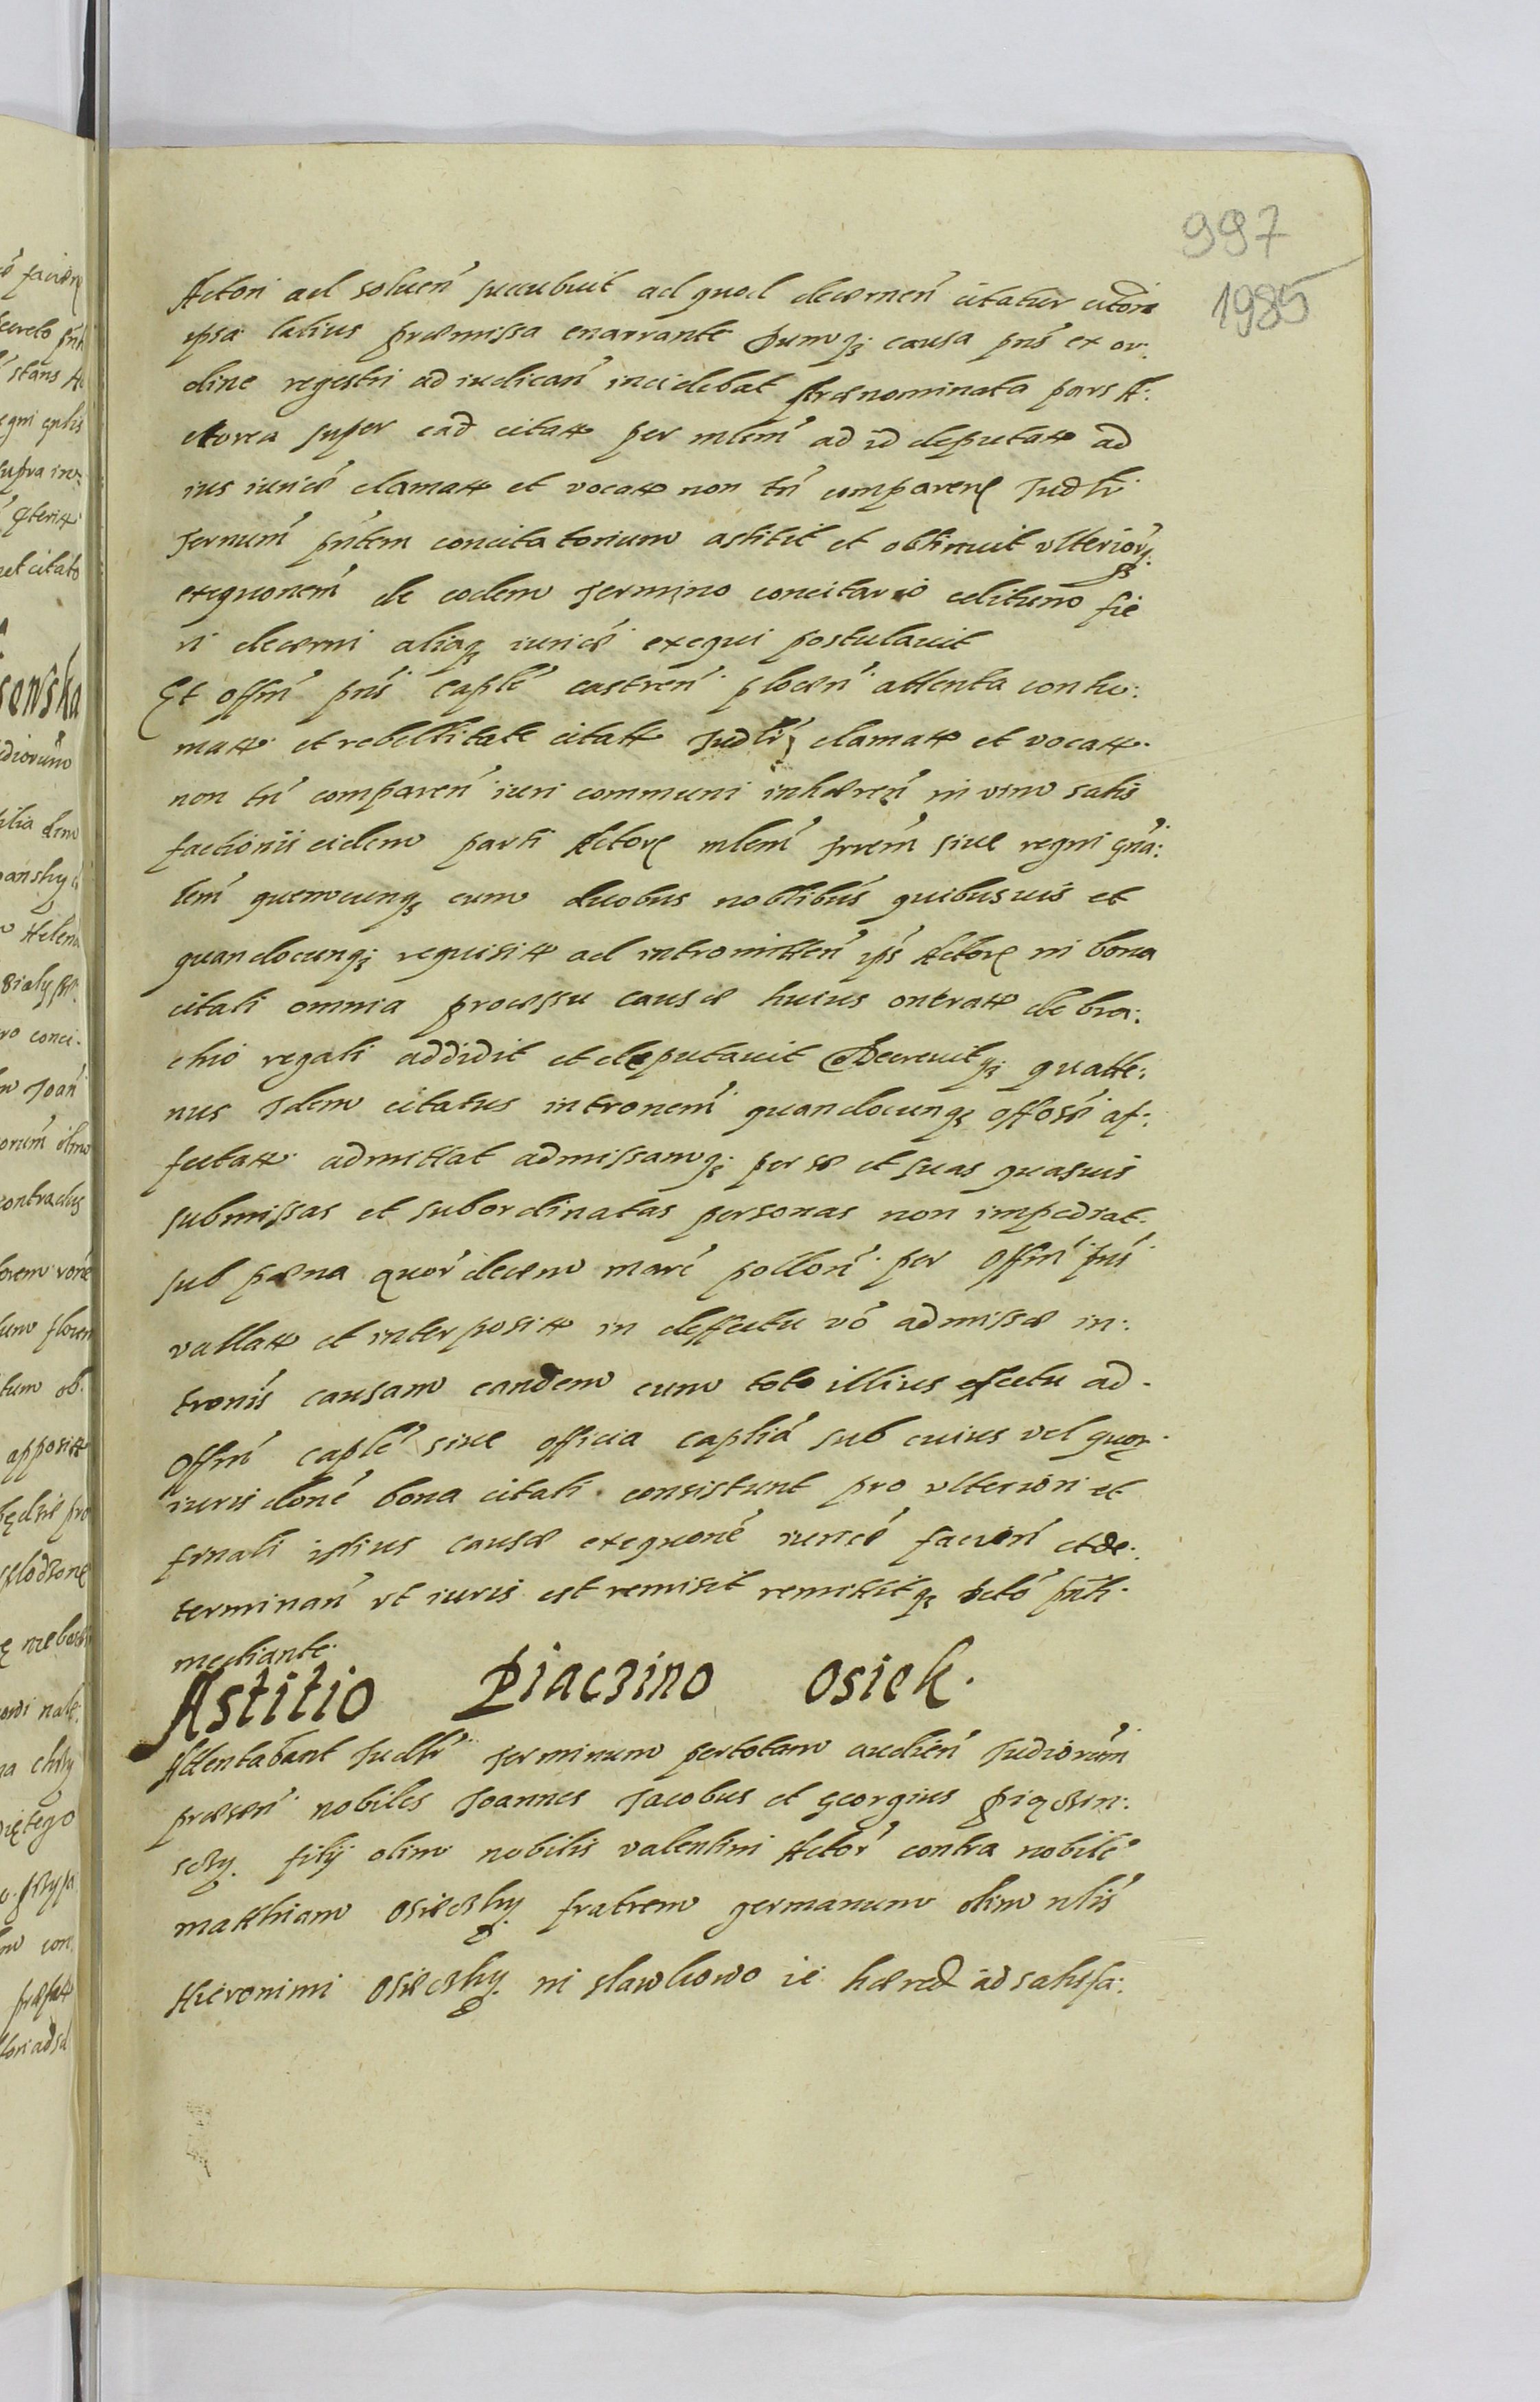 997
1985
Actori ad soluen̄ succubuit ad quod decernen̄ citatur citõne
ipsa latius præmissa enarrante Dumq; causa pn̄s ex or:
dine regestri ad iudican̄ incidebat prænominata pars A:
ctorea super ead citatt per mlem̄ ad id deputatt ad
ius iuricē clamatt et vocatt non tn̄ comparen̄ Judtr
Termm̄ pn̄tem concitatorium astitit et obtinuit vlteriorq
exequonem̄ de eodem Termino concitario edituno fie
ri decerni aliaq iuricē exequi postulauit
Et offm̄ pn̄s Caplē castren̄ plocen̄ attenta contu:
matt et rebellitate citatt Judtr clamatt et vocatt
non tn̄ comparen̄ iuri communi inhæren̄ in vim satis
factionis eidem parti Actoreę mlem̄ trrem̄ siue regni gn̄a:
lem̄ quemcunq; cum duobus noblibus quibusuis et
quandocunq; requisitt ad intromitten̄ ips Actoreę in bona
citati omnia processu causæ huius onratt de bra:
chio regali addidit et deputauit Decreuitq; quatte:
nus Idem citatus intronem̄ quandocunq; offōsē af:
fectatt admittat admissamq; per se et suas quasuis
submissas et subordinatas personas non impediat
sub pæna quor̄ decem marc̄ pollon̄ per Offm̄ pn̄s
vallatt et interpositt in deffectu vō admissæ in:
tronis causam eandem cum toto illius effectu ad
Offm̄ caplē siue officia caplia sub cuius vel quorq
iuris done bona citati consistunt pro vlteriori et
finali istius causæ exequone iuricē facien̄ et de:
terminan̄ vt iuris est remisit remittitq; decto pn̄ti
mediante
Astitio Piaczino Osiek.
Attentabant Judtr Terminum per totam audien̄ Judiorum̄
præsen̄ nobiles Joannes Jacobus et Georgius Piączin:
sczy filij olim nobilis Valentini Actor̄ contra nobilē
Matthiam Osieczky fratrem germanum olim nlis
Hieronimi Osieczky in Slawkowo ie hæred ad satisfa: